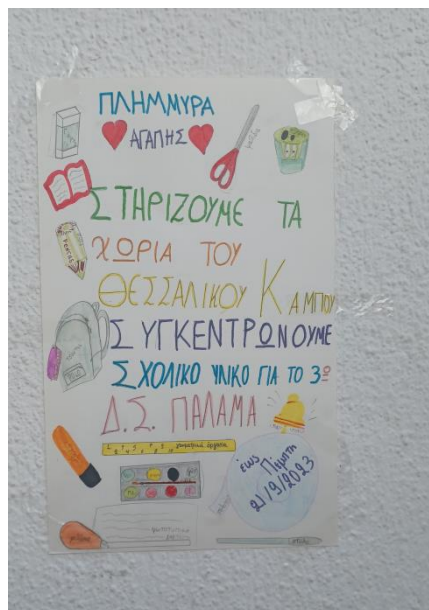 ΠΛΗΜΜΥΡΑ
ΑΓΑΠΗΣ
ΣΤΗΡΙΖΟΥΜΕ ΤΑ
ΧΩΡΙΑ ΤΟΥ
ΘΕΣΣΑΛΙΚΟΥ ΚΑΜΠΟΥ
ΣΥΓΚΕΝΤΡΩΝΟΥΜΕ
ΣΧΟΛΙΚΟ ΥΛΙΚΟ ΓΙΑ ΤΟ 3ο
Δ.Σ. ΠΑΛΑΜΑ
έως
Πέμπτη
21/9/2023